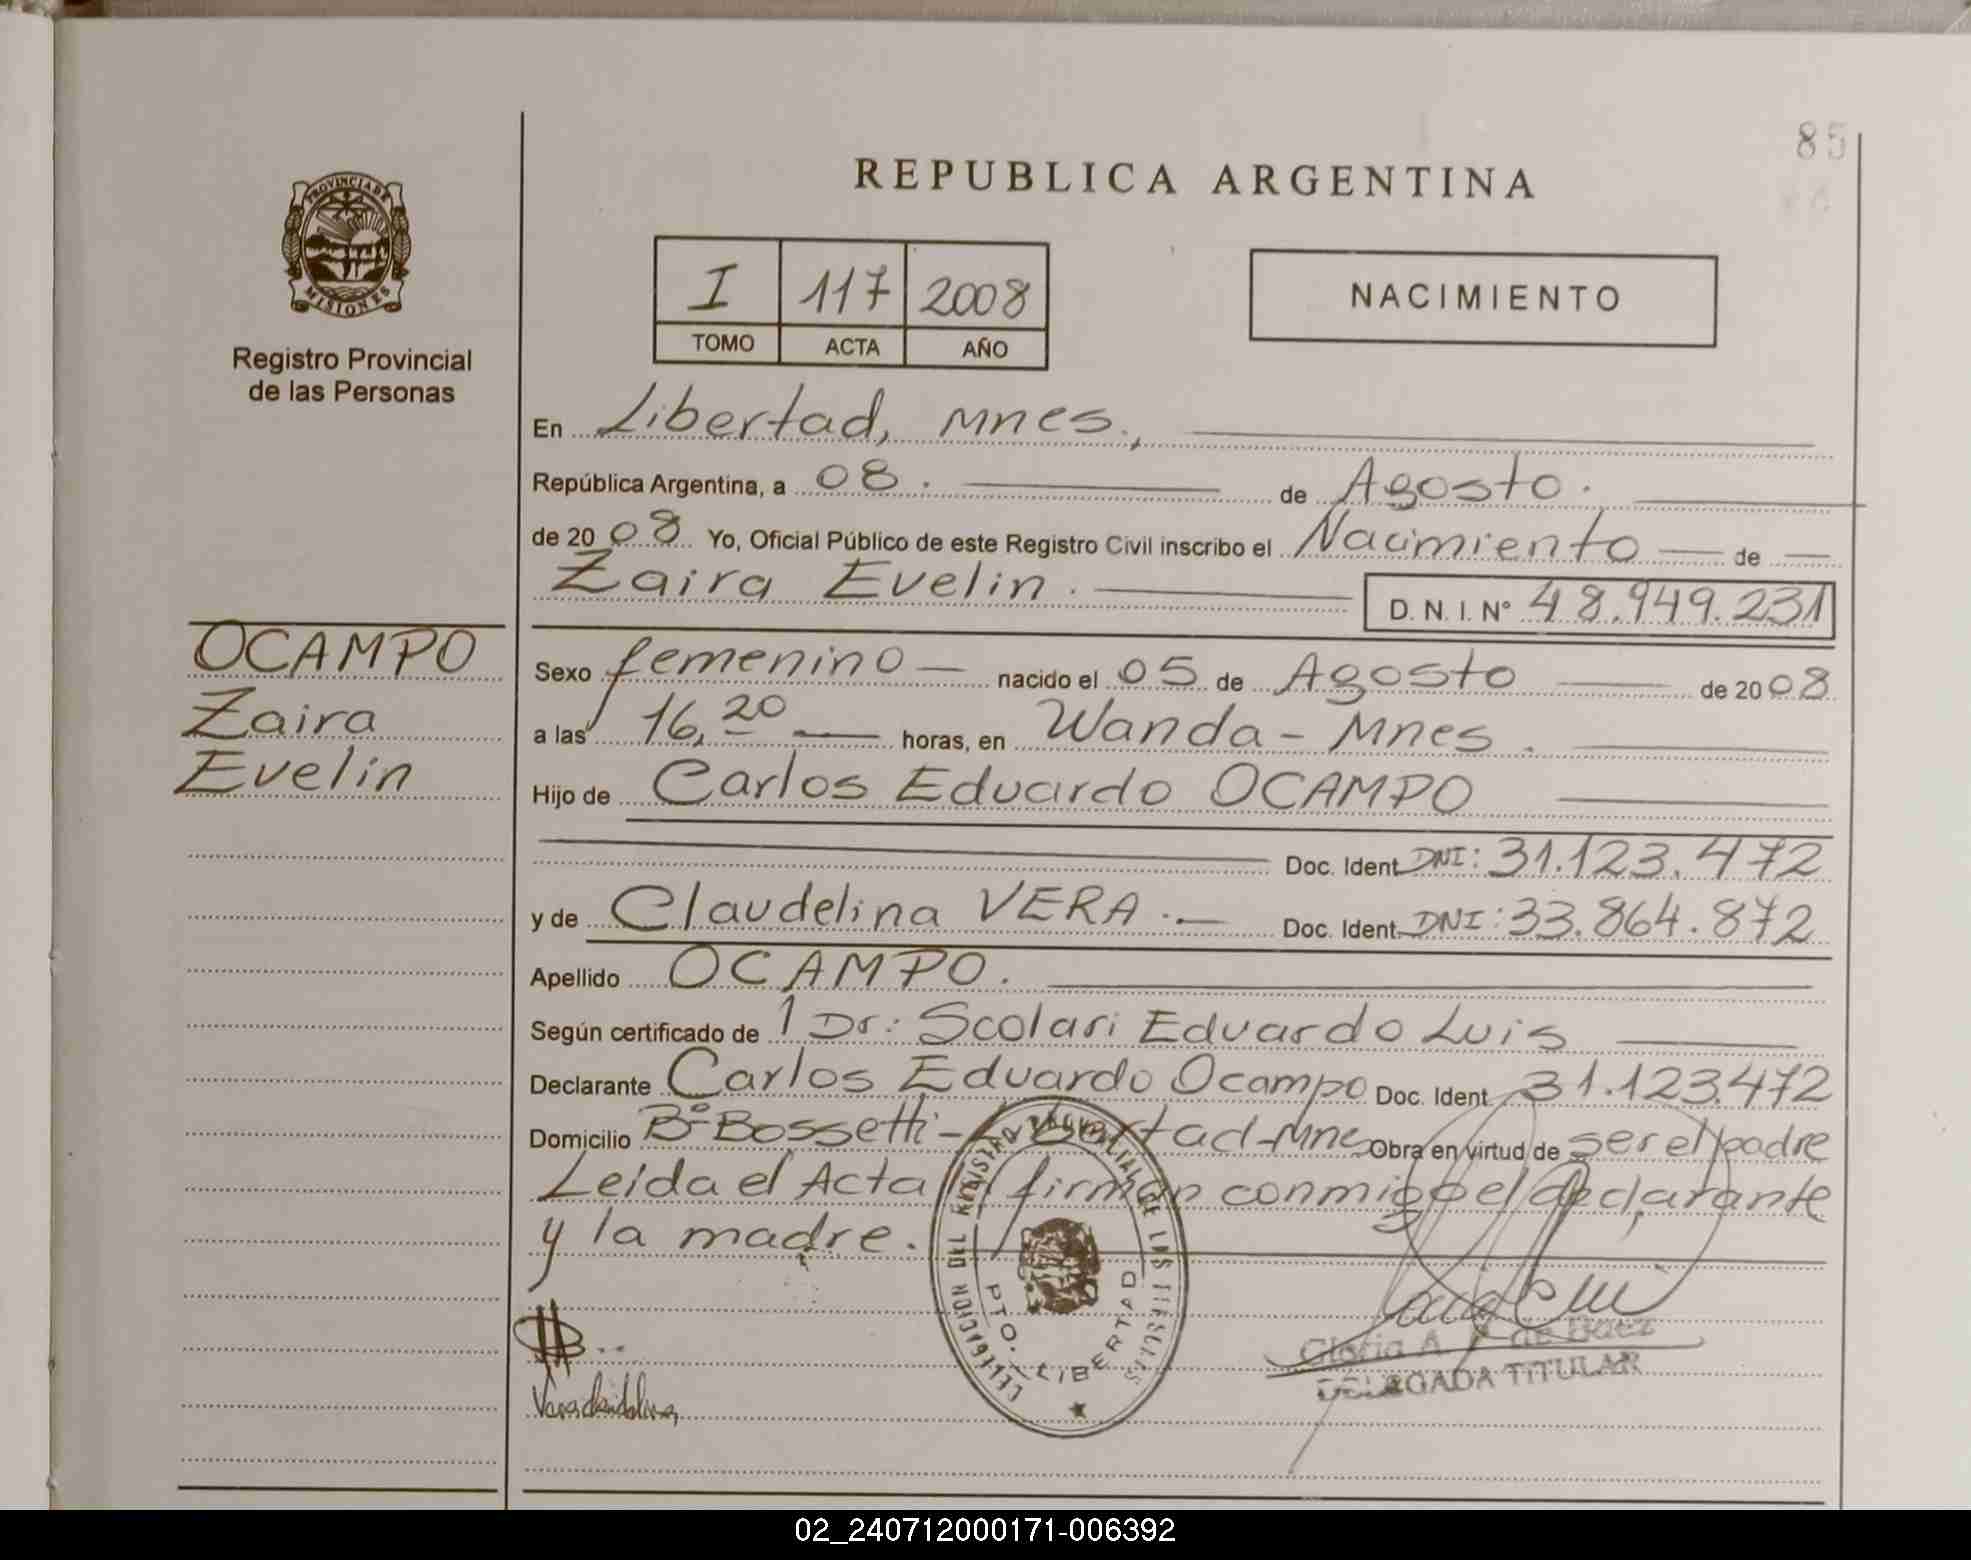 85
REPUBLICA ARGENTINA
PROVINCIA DE
MISIONES
Registro Provincial
de las Personas
I 117 2008
TOMO ACTA AÑO
NACIMIENTO
En Libertad, Mnes.,
República Argentina, a 08. de Agosto.
de 2008 Yo, Oficial Público de este Registro Civil inscribo el Nacimiento de
Zaira Evelin. D. N. I. Nº 48.949.231
OCAMPO
Zaira
Evelin
Sexo femenino nacido el 05 de Agosto de 2008
a las 16,20 horas, en Wanda - Mnes.
Hijo de Carlos Eduardo OCAMPO
Doc. Ident DNI: 31.123.472
y de Claudelina VERA.- Doc. Ident. DNI: 33.864.872
Apellido OCAMPO.
Según certificado de 1 Dr: Scolari Eduardo Luis
Declarante Carlos Eduardo Ocampo Doc. Ident 31.123.472
Domicilio Bº Bossetti - Libertad - Mnes Obra en virtud de ser el padre
Leída el Acta firman conmigo el declarante
y la madre.
DELEGACION DEL REGISTRO PROVINCIAL DE LAS PERSONAS
PTO. LIBERTAD
Vera Claudelina
Gloria A. de Baez
DELEGADA TITULAR
02_240712000171-006392